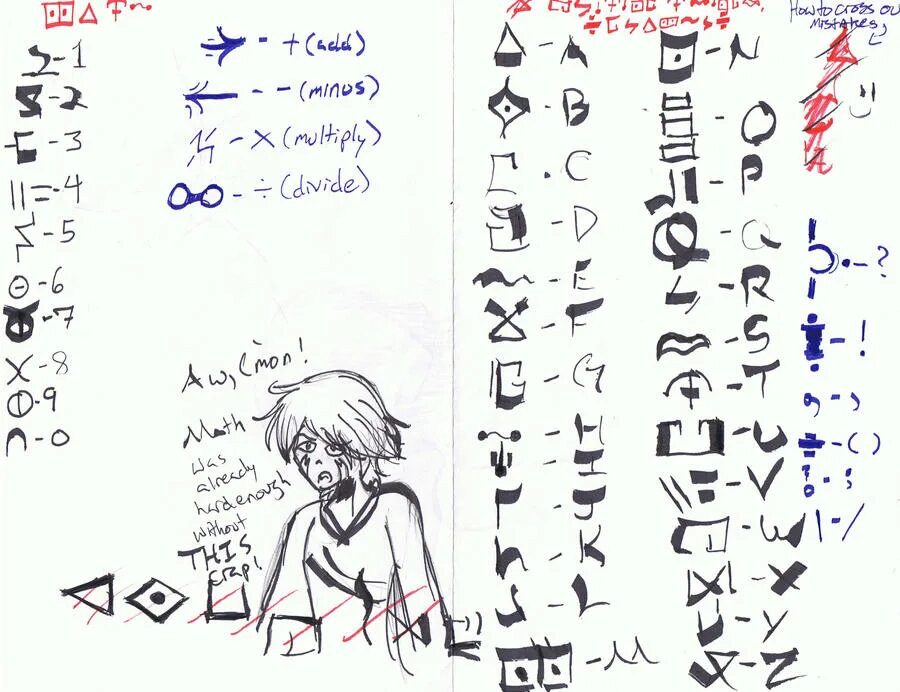 How to cross ou
mistakes
-1
-2
-3
-4
-5
-6
-7
-8
-9
-0
- + (add)
- - (minus)
- × (multiply)
- ÷ (divide)
Aw, C'mon!
Math
was
already
hard enough
without
THIS
crap!
- A
- B
. C
- D
- E
- F
- G
- H
- I
- J
- K
- L
- M
- N
- O
- P
- Q
- R
- S
- T
- U
- V
- W
- X
- Y
- Z
- ?
- !
- ,
- ( )
- ;
- /